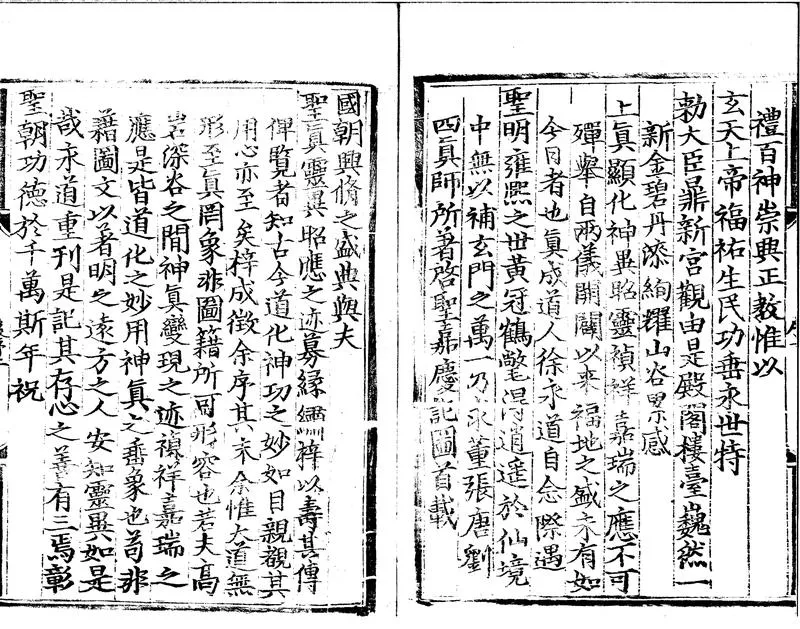 禮百神崇興正教惟以
玄天上帝福祐生民功垂永世特
勑大臣鼎新宮觀由是殿閣樓臺巍然一
新金碧丹漆絢耀山谷累感
上真顯化神異昭靈禎祥嘉瑞之應不可
殫舉自兩儀開闢以來福地之盛未有如
今日者也真成道人徐永道自念際遇
聖明雍熙之世黃冠鶴氅逍遙於仙境
中無以補玄門之萬一乃求董張唐劉
四真師所著啓聖嘉慶記圖首載
國朝興脩之盛典與夫
聖真靈異昭應之迹募緣繡梓以壽其傳
俾覽者知古今道化神功之妙如目親觀其
用心亦至矣梓成徵余序其末余惟大道無
形至真罔象非圖籍所可形容也若夫高
岩深谷之間神真變現之迹禎祥嘉瑞之
應是皆道化之妙用神真之垂象也苟非
籍圖文以著明之遠方之人安知靈異如是
哉永道重刊是記其存心之善有三焉彰
聖朝功德於千萬斯年祝